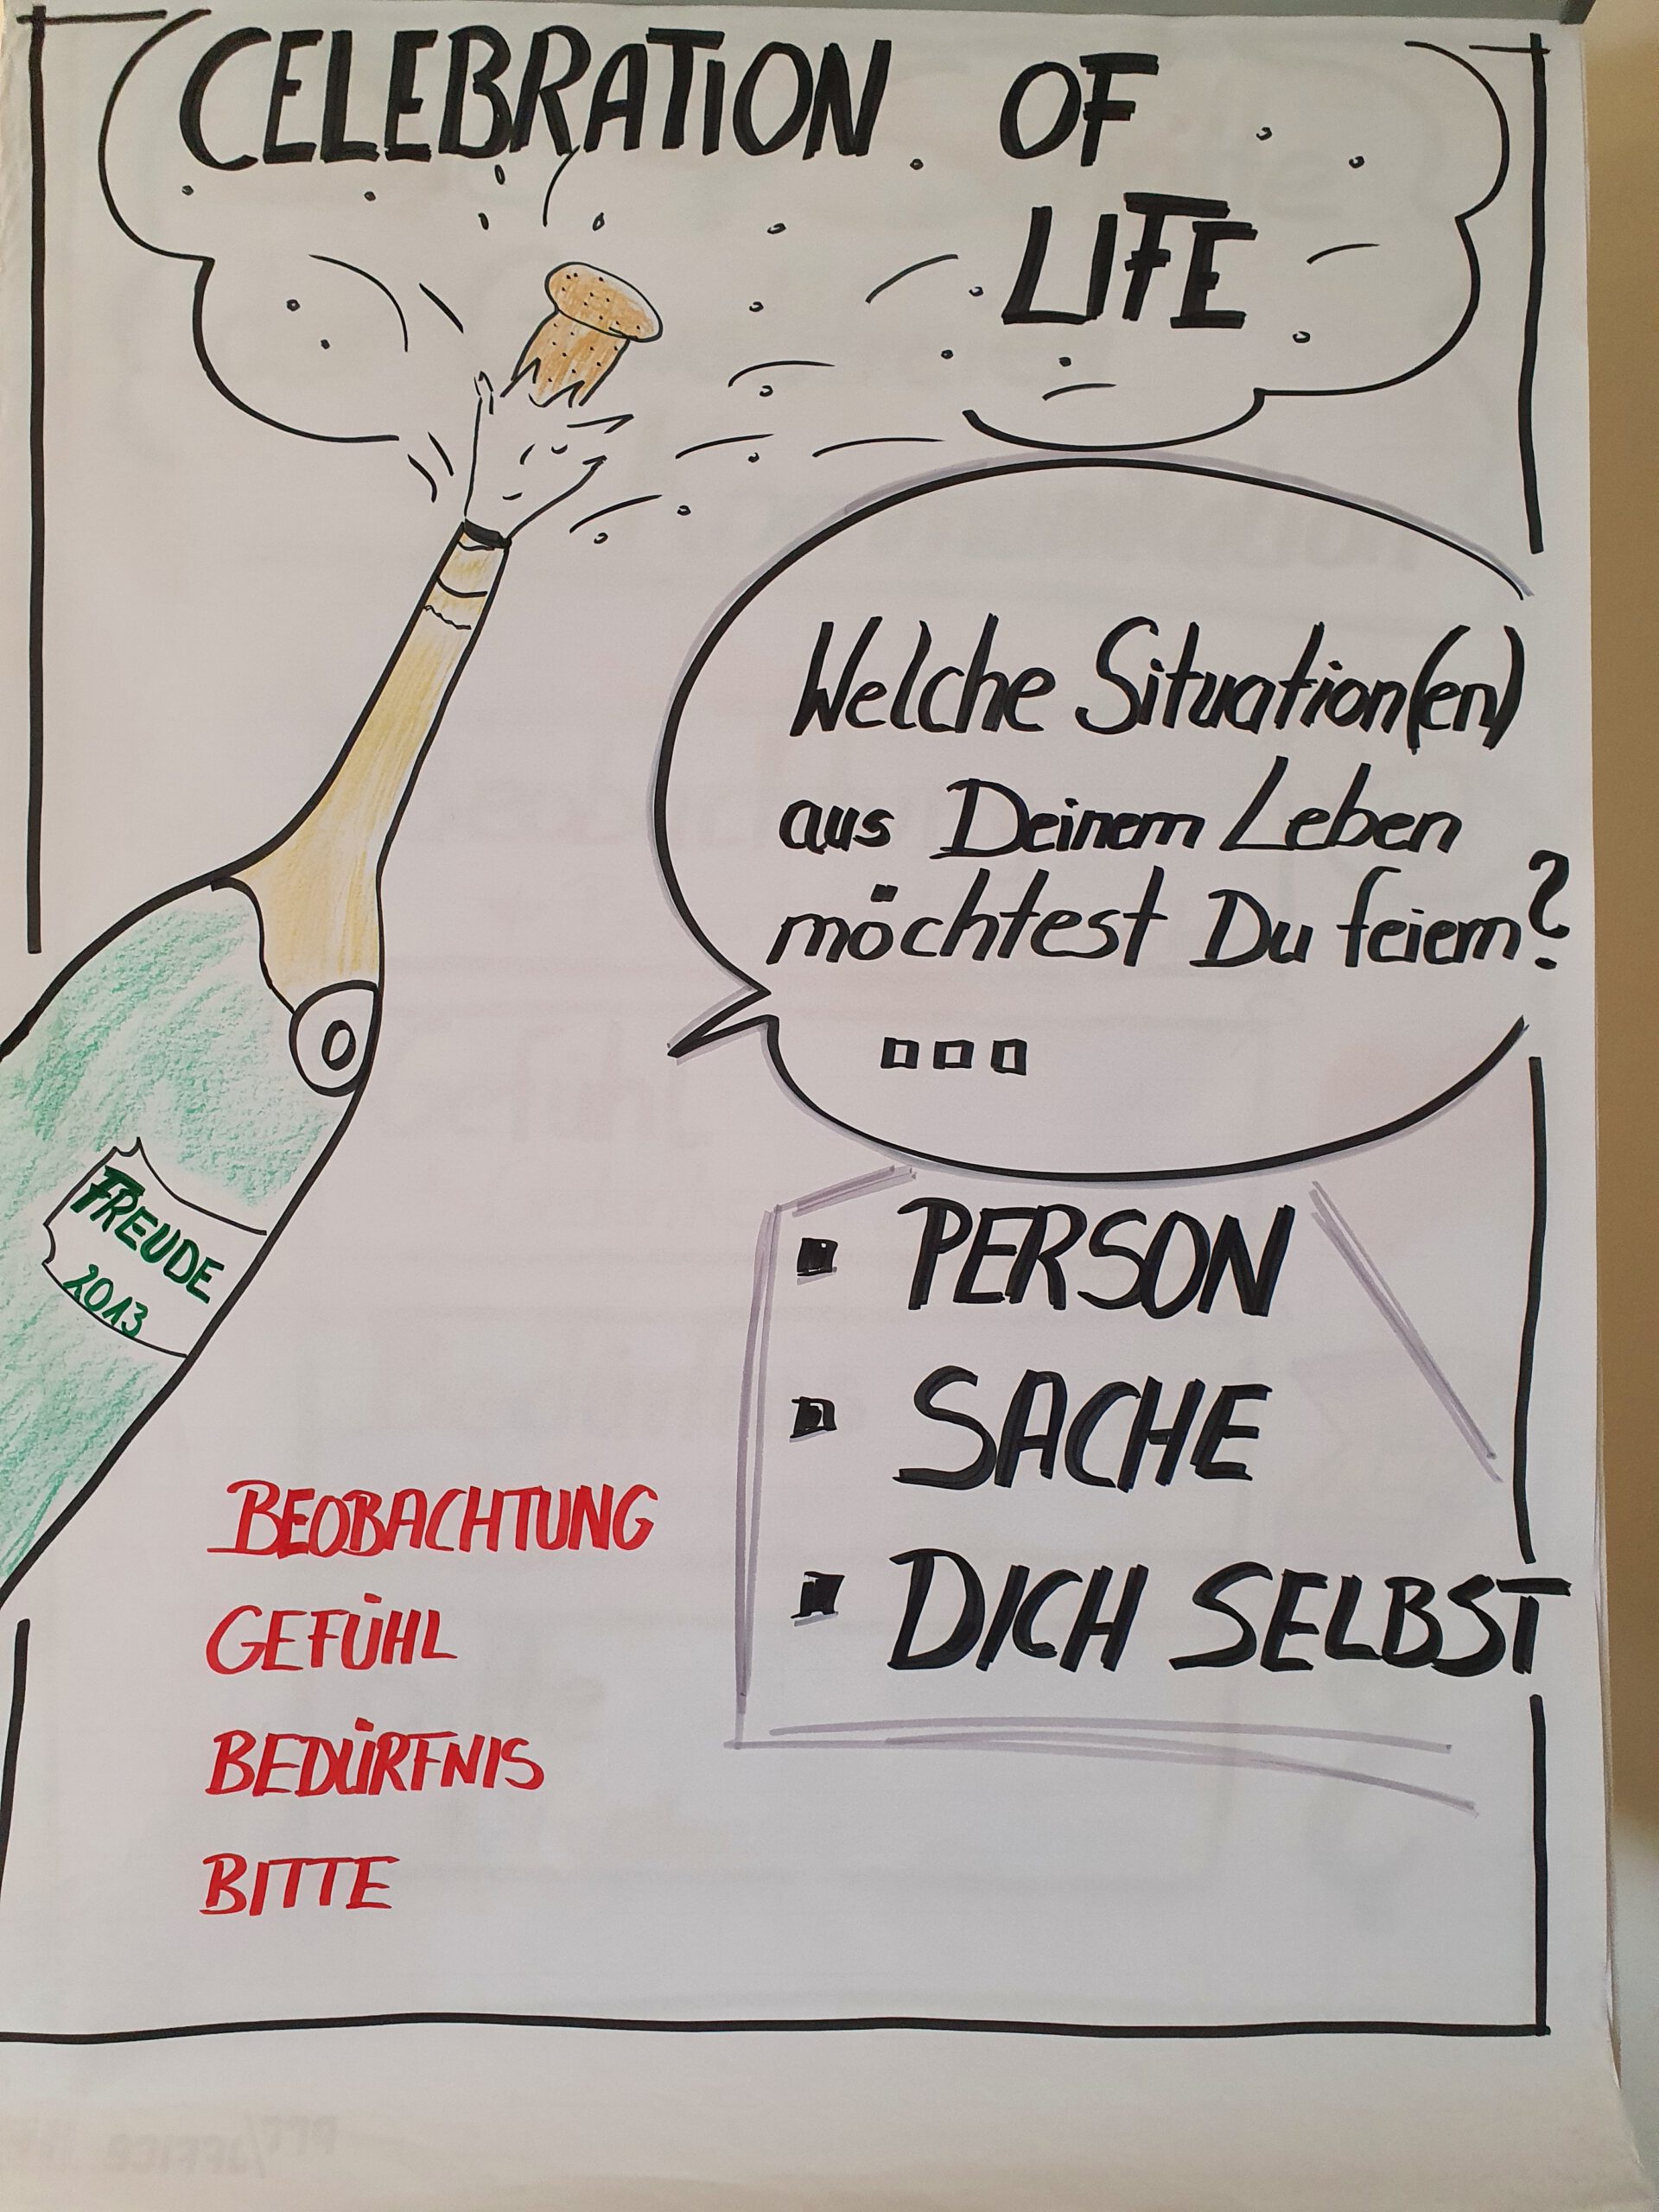 CELEBRATION OF
LIFE
Welche Situation(en)
aus Deinem Leben
möchtest Du feiern?
...
FREUDE
2013
▪ PERSON
▪ SACHE
▪ DICH SELBST
BEOBACHTUNG
GEFÜHL
BEDÜRFNIS
BITTE